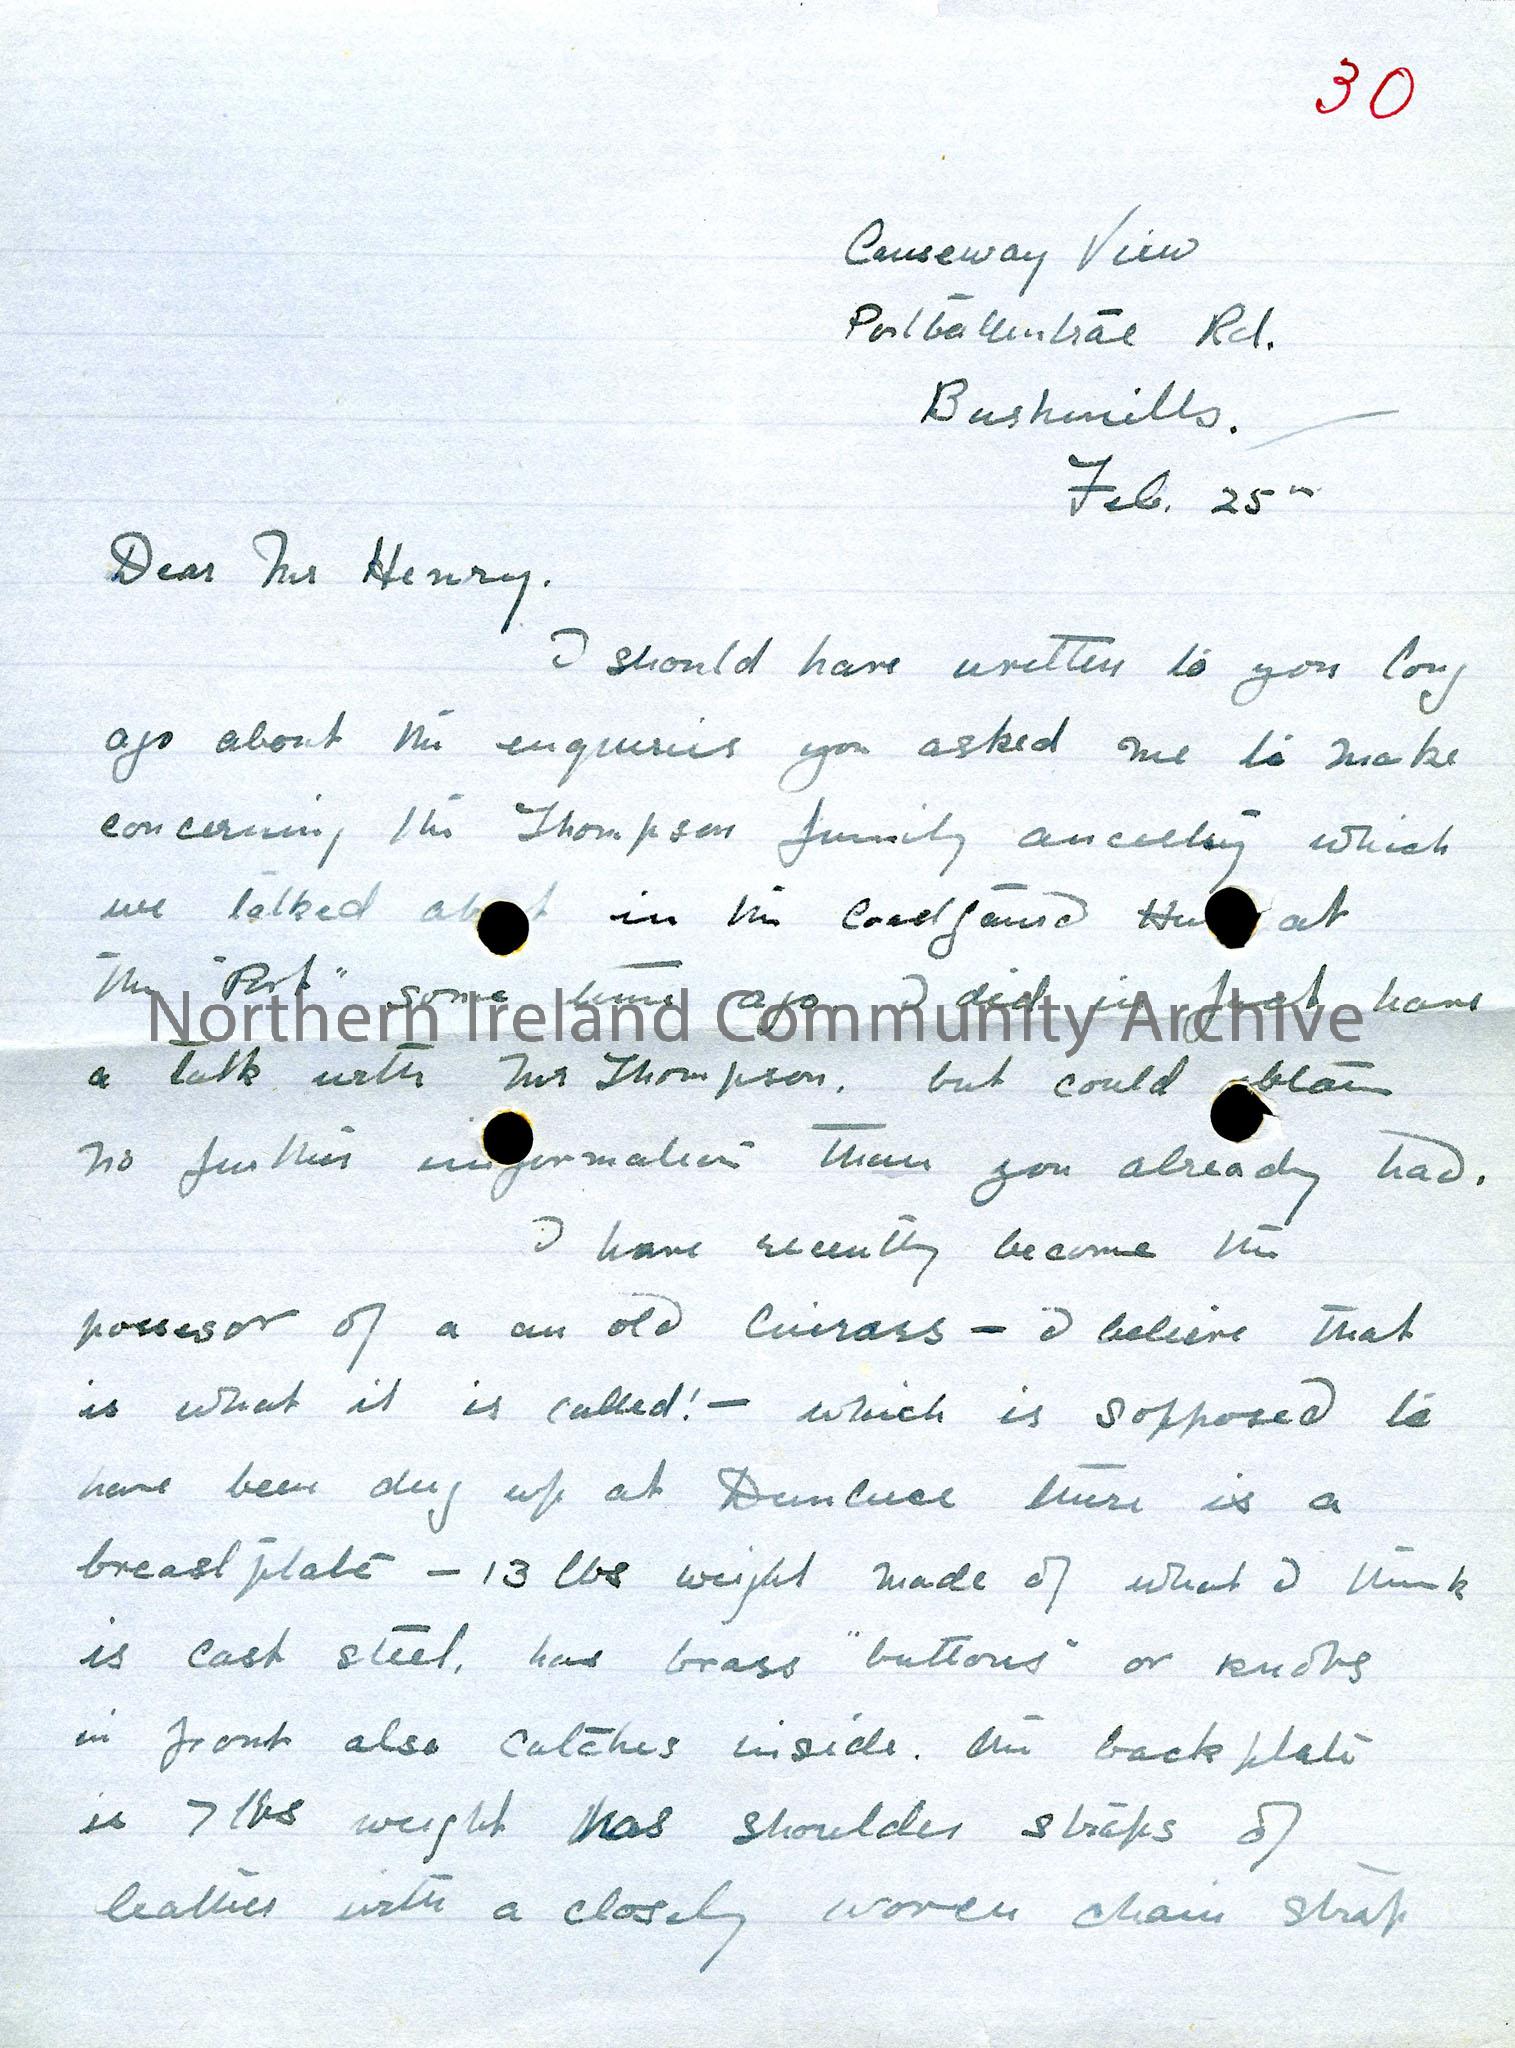 30
Causeway View
Portballintrae Rd.
Bushmills.
Feb. 25"
Dear Mr Henry.
I should have written to you long
ago about the enquiries you asked me to make
concerning the Thompson family ancestry which
we talked about in the Coastguard Hut at
the "Port" some time ago I did in fact have
Northern Ireland Community Archive
a talk with Mr Thompson, but could obtain
no further information than you already had.
I have recently become the
possesor of a an old Cuirass – I believe that
is what it is called! – which is sopposed to
have been dug up at Dunluce there is a
breastplate – 13 lbs weight made of what I think
is cast steel, has brass "buttons" or knobs
in front also catches inside. the backplate
is 7 lbs weight has shoulder straps of
leather with a closely woven chain strap